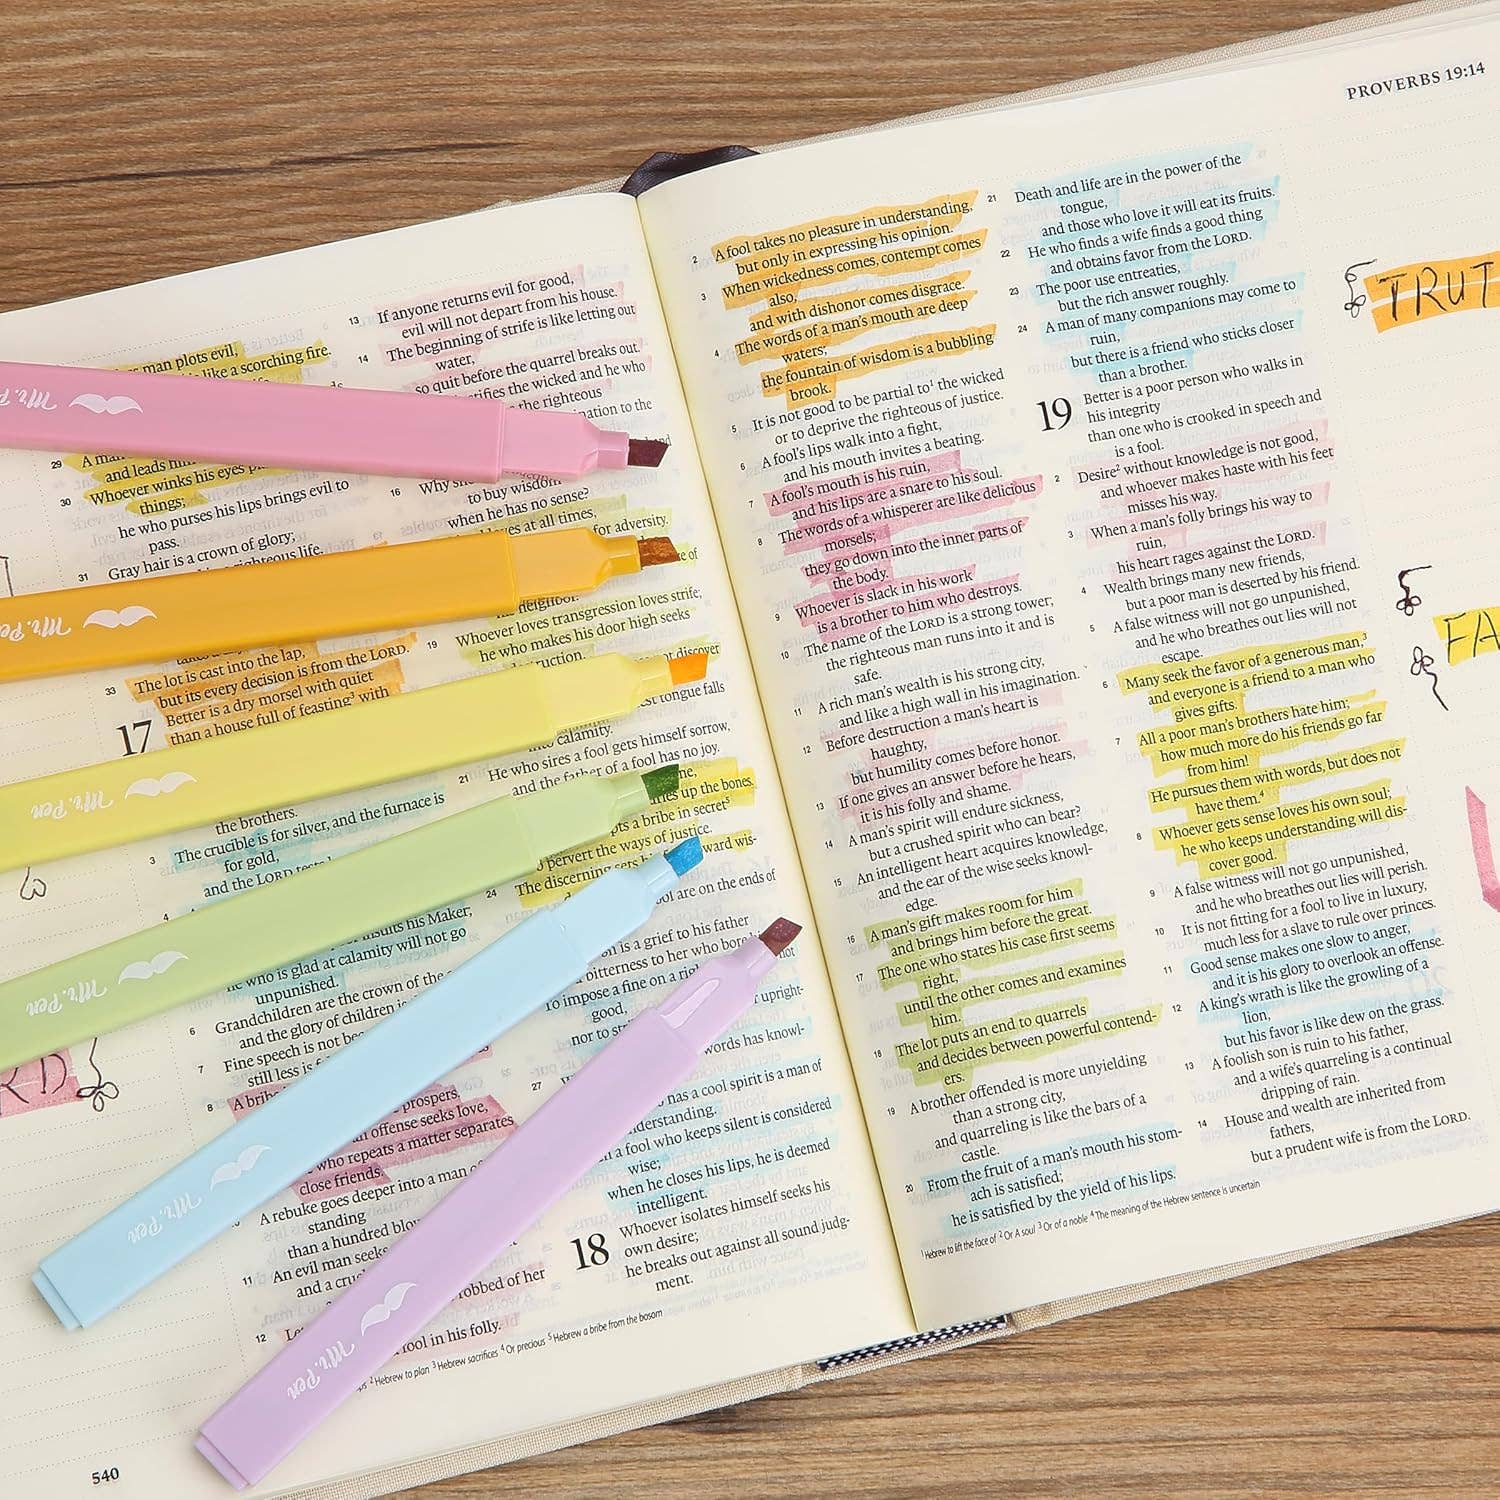 man plots evil,
like a scorching fire.
29 A man
and leads him
30 Whoever winks his eyes
things;
he who purses his lips brings evil to
pass.
31 Gray hair is a crown of glory;
righteous life.
33 The lot is cast into the lap,
but its every decision is from the LORD.
17 Better is a dry morsel with quiet
than a house full of feasting² with
the brothers.
3 The crucible is for silver, and the furnace is
for gold,
and the LORD
4
insults his Maker;
he who is glad at calamity will not go
unpunished.
6 Grandchildren are the crown of the
and the glory of children is
7 Fine speech is not
still less is
8 A bribe
prospers.
an offense seeks love,
who repeats a matter separates
close friends.
A rebuke goes deeper into a man of
standing
than a hundred blows
11 An evil man seeks
and a
12
robbed of her
fool in his folly.
13 If anyone returns evil for good,
evil will not depart from his house.
14 The beginning of strife is like letting out
water,
so quit before the quarrel breaks out.
the wicked and he who
the righteous
to the
16 Why
to buy wisdom
when he has no sense?
loves at all times,
for adversity.
neighbor.
19 Whoever loves transgression loves strife;
he who makes his door high seeks
discover
tongue falls
into calamity.
21 He who sires a fool gets himself sorrow,
and the father of a fool has no joy.
up the bones.
a bribe in secret⁵
to pervert the ways of justice.
24 The discerning sets his
toward wis-
are on the ends of
is a grief to his father
bitterness to her who bore
To impose a fine on a
not
good,
nor to
upright-
words has knowl-
27
has a cool spirit is a man of
understanding.
a fool who keeps silent is considered
wise;
when he closes his lips, he is deemed
intelligent.
18 Whoever isolates himself seeks his
own desire;
he breaks out against all sound judg-
ment.
² Hebrew to plan ³ Hebrew sacrifices ⁴ Or precious ⁵ Hebrew a bribe from the bosom
540
Mr. Pen
Mr. Pen
Mr. Pen
Mr. Pen
Mr. Pen
Mr. Pen
PROVERBS 19:14
2 A fool takes no pleasure in understanding,
but only in expressing his opinion.
3 When wickedness comes, contempt comes
also,
and with dishonor comes disgrace.
4 The words of a man's mouth are deep
waters;
the fountain of wisdom is a bubbling
brook.
5 It is not good to be partial to¹ the wicked
or to deprive the righteous of justice.
6 A fool's lips walk into a fight,
and his mouth invites a beating.
7 A fool's mouth is his ruin,
and his lips are a snare to his soul.
8 The words of a whisperer are like delicious
morsels;
they go down into the inner parts of
the body.
9 Whoever is slack in his work
is a brother to him who destroys.
10 The name of the LORD is a strong tower;
the righteous man runs into it and is
safe.
11 A rich man's wealth is his strong city,
and like a high wall in his imagination.
12 Before destruction a man's heart is
haughty,
but humility comes before honor.
13 If one gives an answer before he hears,
it is his folly and shame.
14 A man's spirit will endure sickness,
but a crushed spirit who can bear?
15 An intelligent heart acquires knowledge,
and the ear of the wise seeks knowl-
edge.
16 A man's gift makes room for him
and brings him before the great.
17 The one who states his case first seems
right,
until the other comes and examines
him.
18 The lot puts an end to quarrels
and decides between powerful contend-
ers.
19 A brother offended is more unyielding
than a strong city,
and quarreling is like the bars of a
castle.
20 From the fruit of a man's mouth his stom-
ach is satisfied;
he is satisfied by the yield of his lips.
21 Death and life are in the power of the
tongue,
and those who love it will eat its fruits.
22 He who finds a wife finds a good thing
and obtains favor from the LORD.
23 The poor use entreaties,
but the rich answer roughly.
24 A man of many companions may come to
ruin,
but there is a friend who sticks closer
than a brother.
19 Better is a poor person who walks in
his integrity
than one who is crooked in speech and
is a fool.
2 Desire² without knowledge is not good,
and whoever makes haste with his feet
misses his way.
3 When a man's folly brings his way to
ruin,
his heart rages against the LORD.
4 Wealth brings many new friends,
but a poor man is deserted by his friend.
5 A false witness will not go unpunished,
and he who breathes out lies will not
escape.
6 Many seek the favor of a generous man,³
and everyone is a friend to a man who
gives gifts.
7 All a poor man's brothers hate him;
how much more do his friends go far
from him!
He pursues them with words, but does not
have them.⁴
8 Whoever gets sense loves his own soul;
he who keeps understanding will dis-
cover good.
9 A false witness will not go unpunished,
and he who breathes out lies will perish.
10 It is not fitting for a fool to live in luxury,
much less for a slave to rule over princes.
11 Good sense makes one slow to anger,
and it is his glory to overlook an offense.
12 A king's wrath is like the growling of a
lion,
but his favor is like dew on the grass.
13 A foolish son is ruin to his father,
and a wife's quarreling is a continual
dripping of rain.
14 House and wealth are inherited from
fathers,
but a prudent wife is from the LORD.
¹ Hebrew to lift the face of ² Or A soul ³ Or of a noble ⁴ The meaning of the Hebrew sentence is uncertain
TRUT
FA
RD